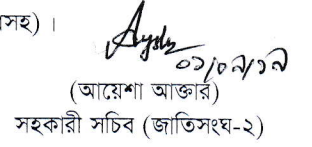 সহ) ।
০১/০৯/১৯
(আয়েশা আক্তার)
সহকারী সচিব (জাতিসংঘ-২)